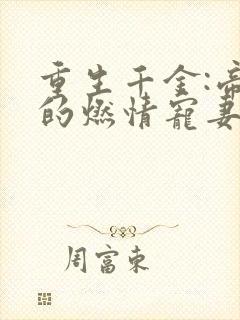 重生千金:帝
的燃情宠妻
周富东